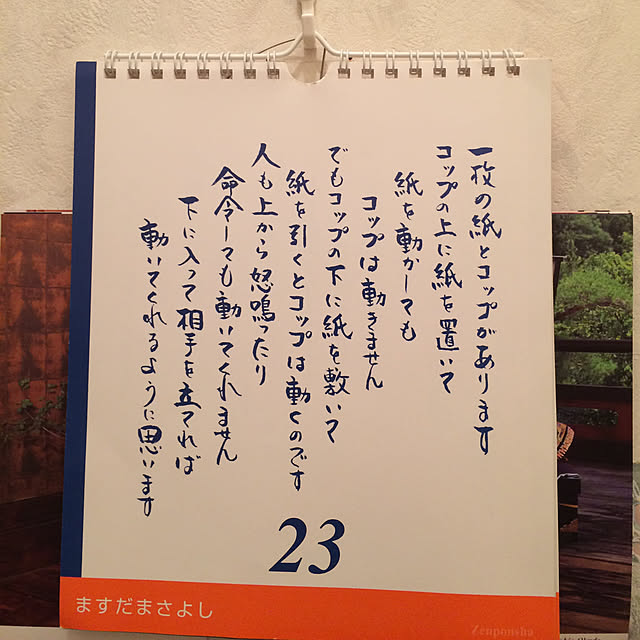 一枚の紙とコップがあります
コップの上に紙を置いて
紙を動かしても
コップは動きません
でもコップの下に紙を敷いて
紙を引くとコップは動くのです
人も上から怒鳴ったり
命令しても動いてくれません
下に入って相手を立てれば
動いてくれるように思います
23
ますだまさよし
Zenponsha